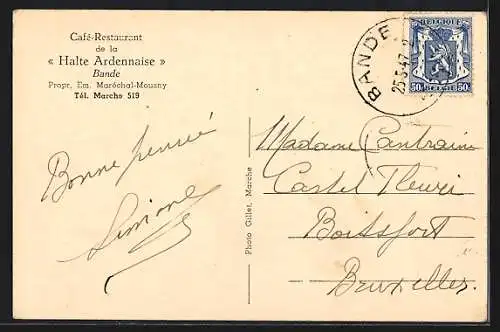 Café-Restaurant
de la
« Halte Ardennaise »
Bande
Propr. Em. Maréchal-Mousny
Tél. Marche 519
Bonne pensée
Simone
Photo Gillet, Marche
BANDE
25.5.47
BELGIQUE
50 BELGIE 50
Madame Cantraine
Castel Fleuri
Boitsfort
Bruxelles.